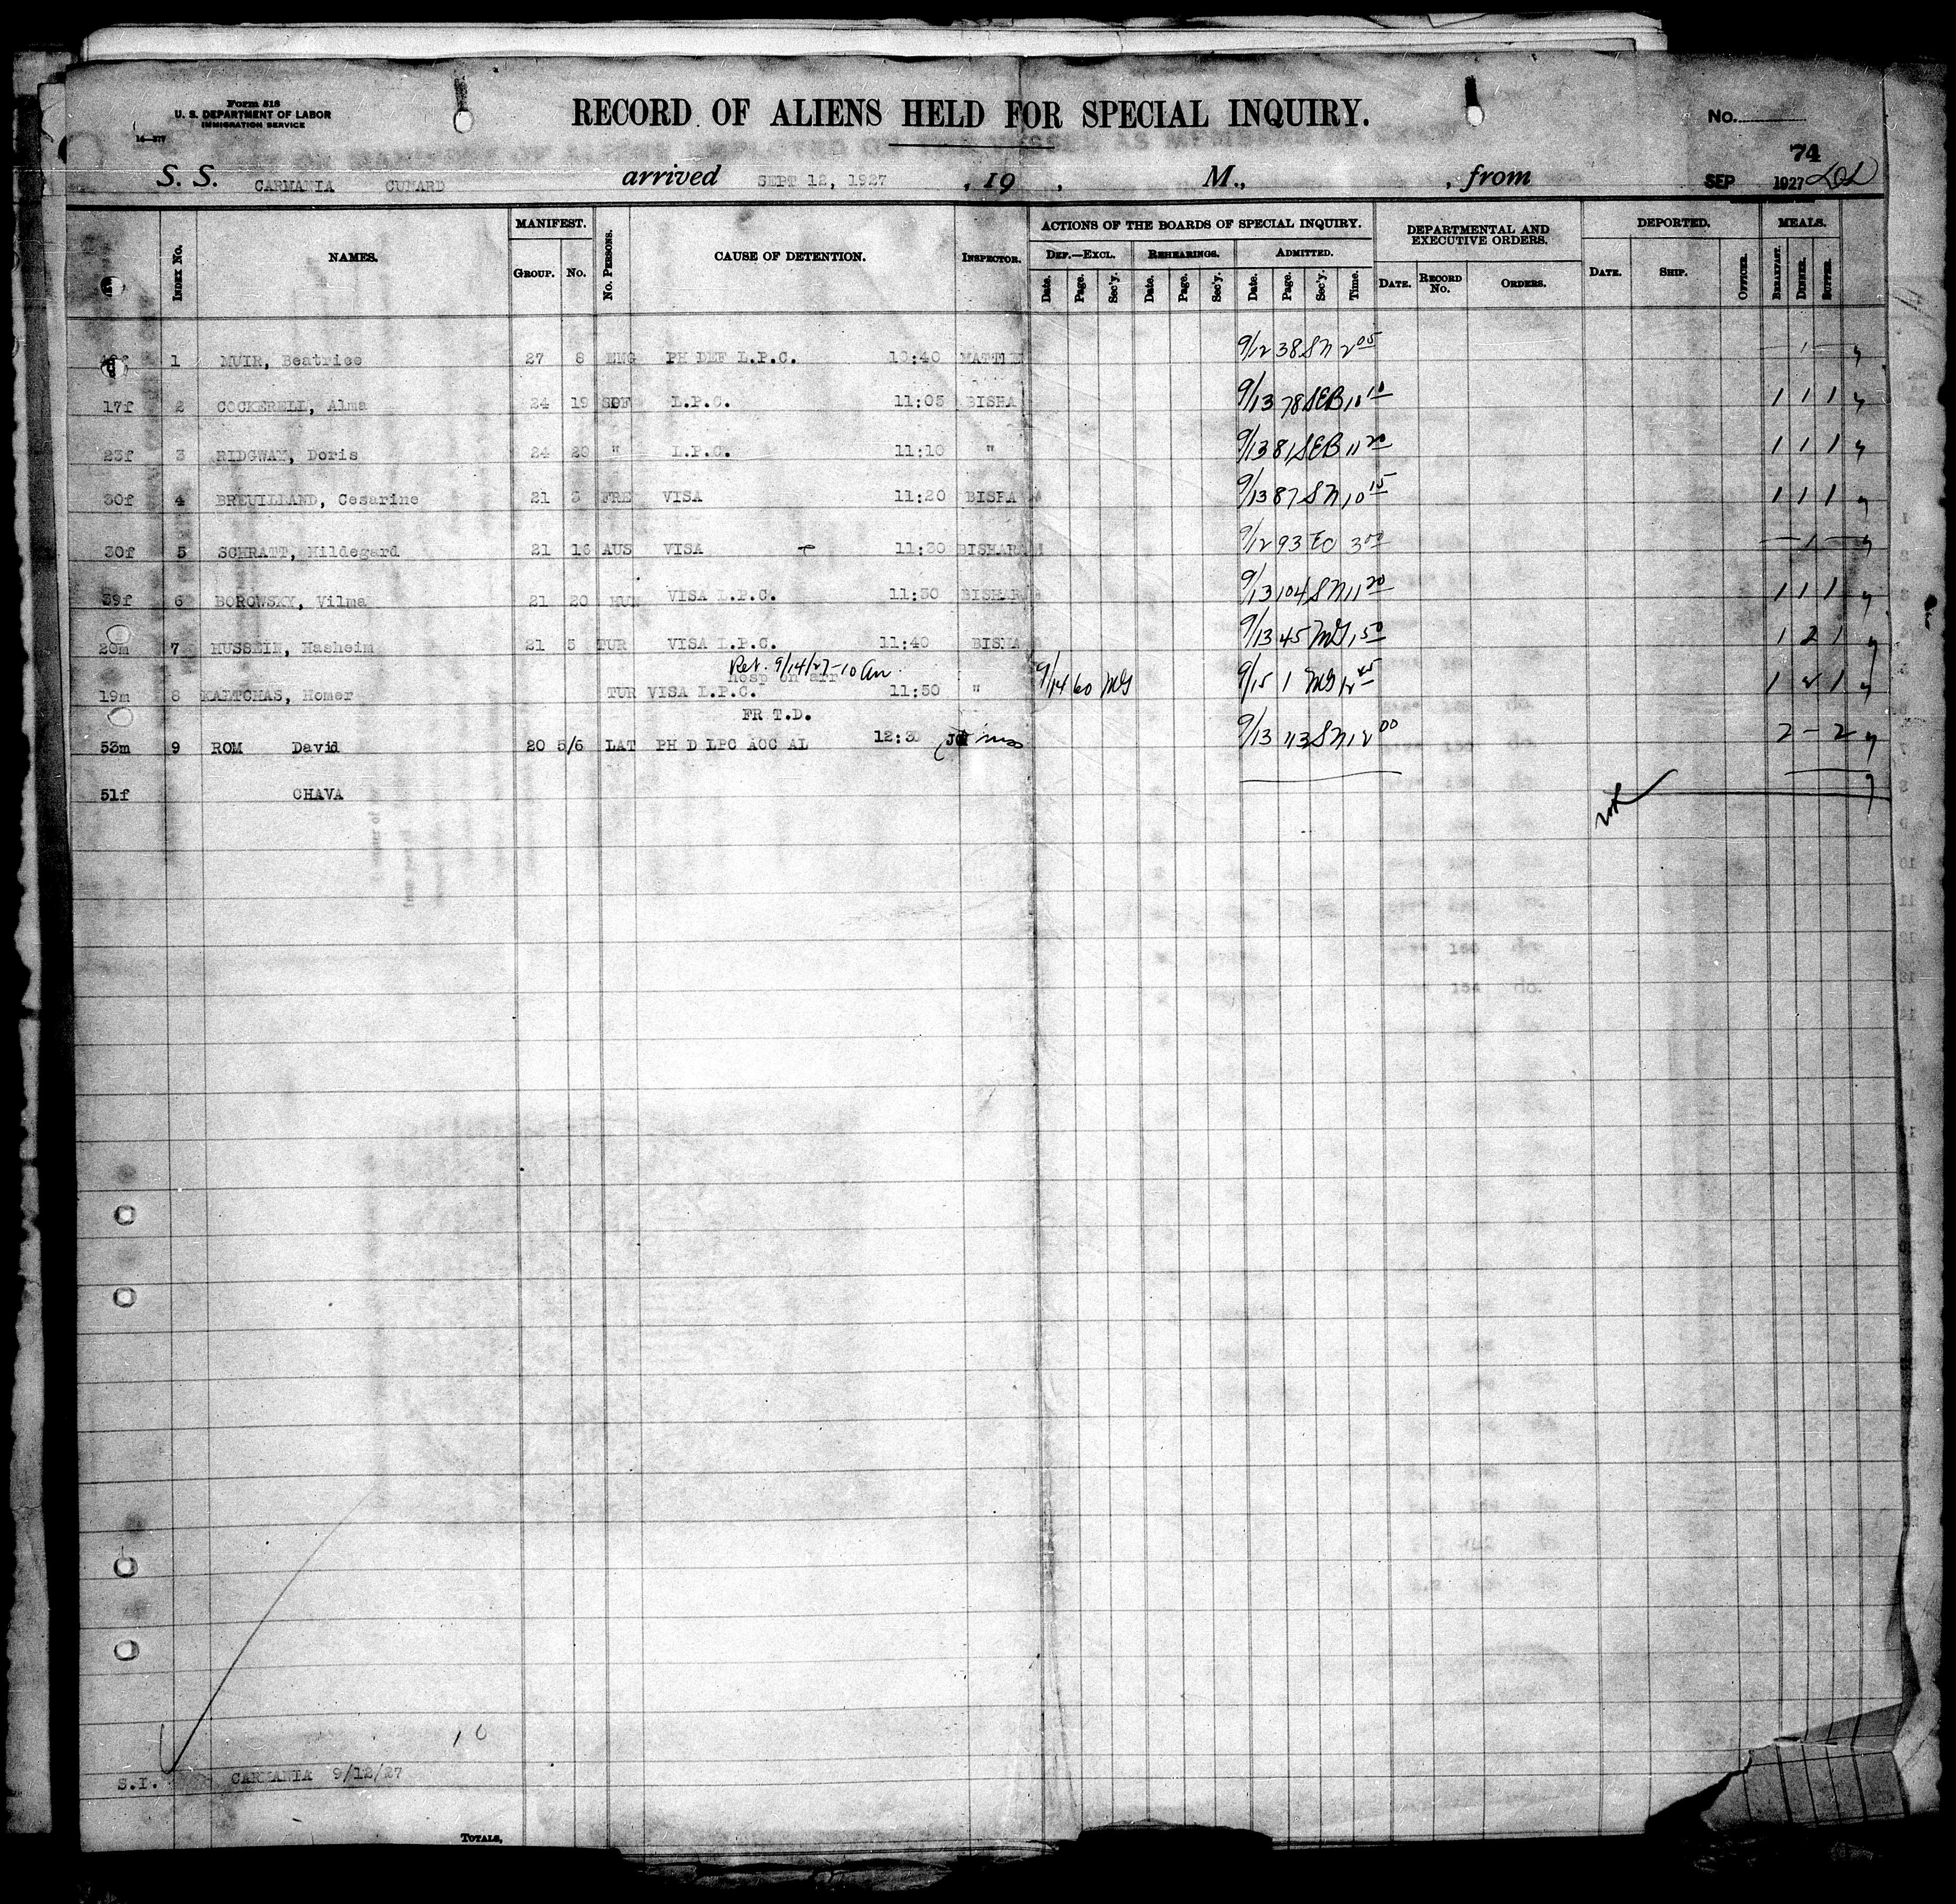 Form 518
U. S. DEPARTMENT OF LABOR
IMMIGRATION SERVICE
RECORD OF ALIENS HELD FOR SPECIAL INQUIRY.
No.
74
S. S. CARMANIA CUNARD arrived SEPT 12, 1927 , 19 , M., , from SEP 1927
MANIFEST. ACTIONS OF THE BOARDS OF SPECIAL INQUIRY. DEPARTMENTAL AND EXECUTIVE ORDERS. DEPORTED. MEALS.
INDEX NO. NAMES. GROUP. NO. NO. PERSONS. CAUSE OF DETENTION. INSPECTOR. DEF.—EXCL. REHEARINGS. ADMITTED.
Date. Page. Sec'y. Date. Page. Sec'y. Date. Page. Sec'y. Time. DATE. RECORD NO. ORDERS. DATE. SHIP. OFFICER. BREAKFAST. DINNER. SUPPER.
1 MUIR, Beatrice 27 8 ENG PH DEF L.P.C. 10:40 9/12 38 SN 2 05 1
17f 2 COCKERELL, Alma 24 19 L.P.C. 11:05 BISHA 9/13 78 SEB 10 10 1 1 1
23f 3 RIDGWAY, Doris 24 20 " L.P.C. 11:10 " 9/13 81 SEB 11 20 1 1 1
30f 4 BREUILLAND, Cesarine 21 3 FRE VISA 11:20 BISHA 9/13 87 SN 10 15 1 1 1
30f 5 SCHRATT, Hildegard 21 16 AUS VISA 11:30 BISHAR 9/12 93 EO 3 00 1
39f 6 BOROWSKY, Vilma 21 20 HUN VISA L.P.C. 11:30 BISHAR 9/13 104 SN 11 20 1 1 1
20m 7 HUSSEIN, Hasheim 21 5 TUR VISA L.P.C. 11:40 BISHA 9/13 45 MG 1 50 1 2 1
Ret. 9/14/27-10 am
hosp on arr
19m 8 KALTCHAS, Homer TUR VISA L.P.C. 11:50 " 9/14 60 MG 9/15 1 MG 12 45 1 2 1
FR T.D.
53m 9 ROM David 20 5/6 LAT PH D LPC ACC AL 12:30 9/13 113 SN 12 00 2 - 2
51f CHAVA
10
S.I. CARMANIA 9/12/27
TOTALS,